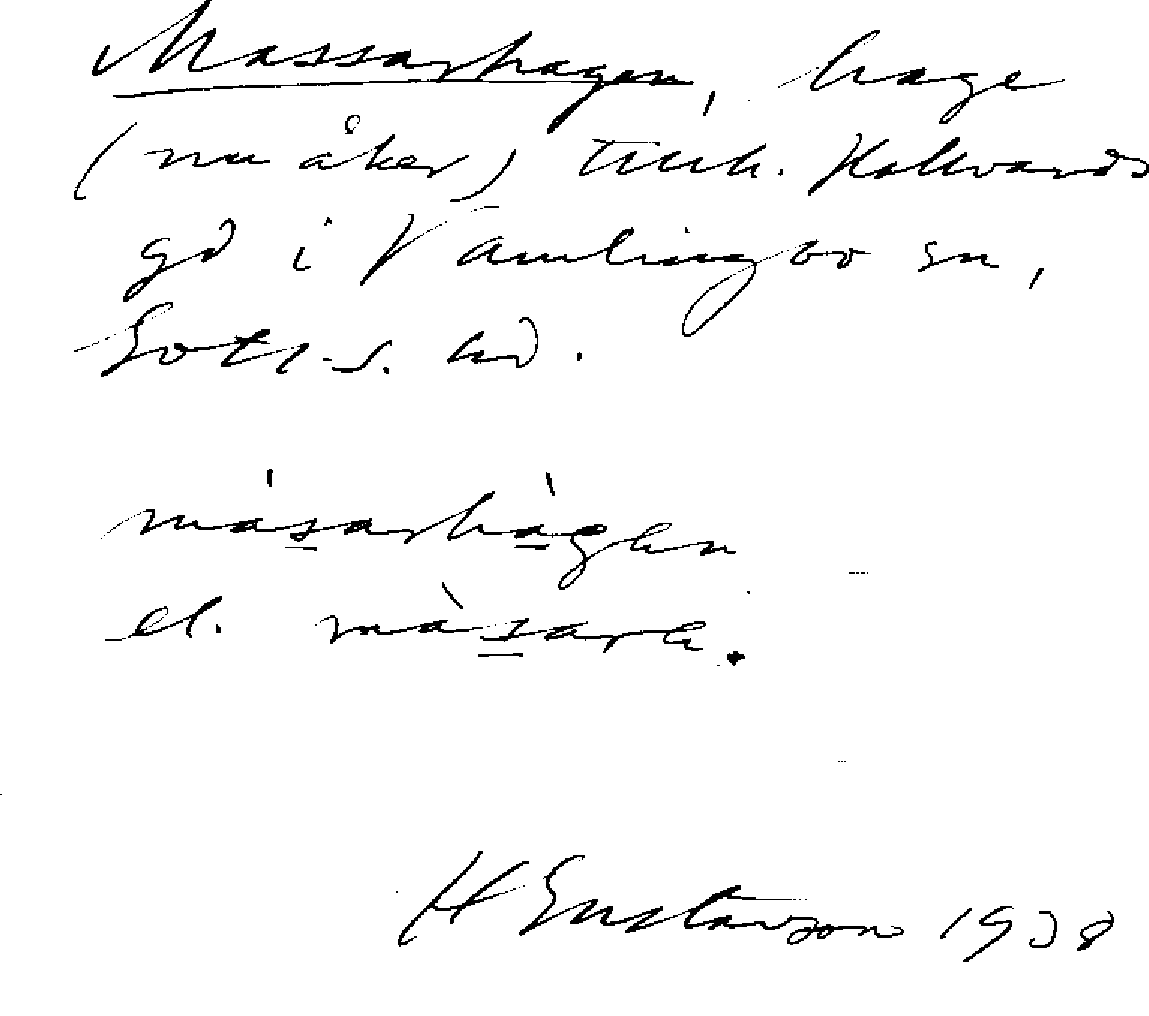 Massarhagen, hage
(nu åker) tillh. Hallvards
gd i Vamlingbo sn,
Gotl. s. hd.
másarhàgen
el. màsare.
H Gustavson 1938